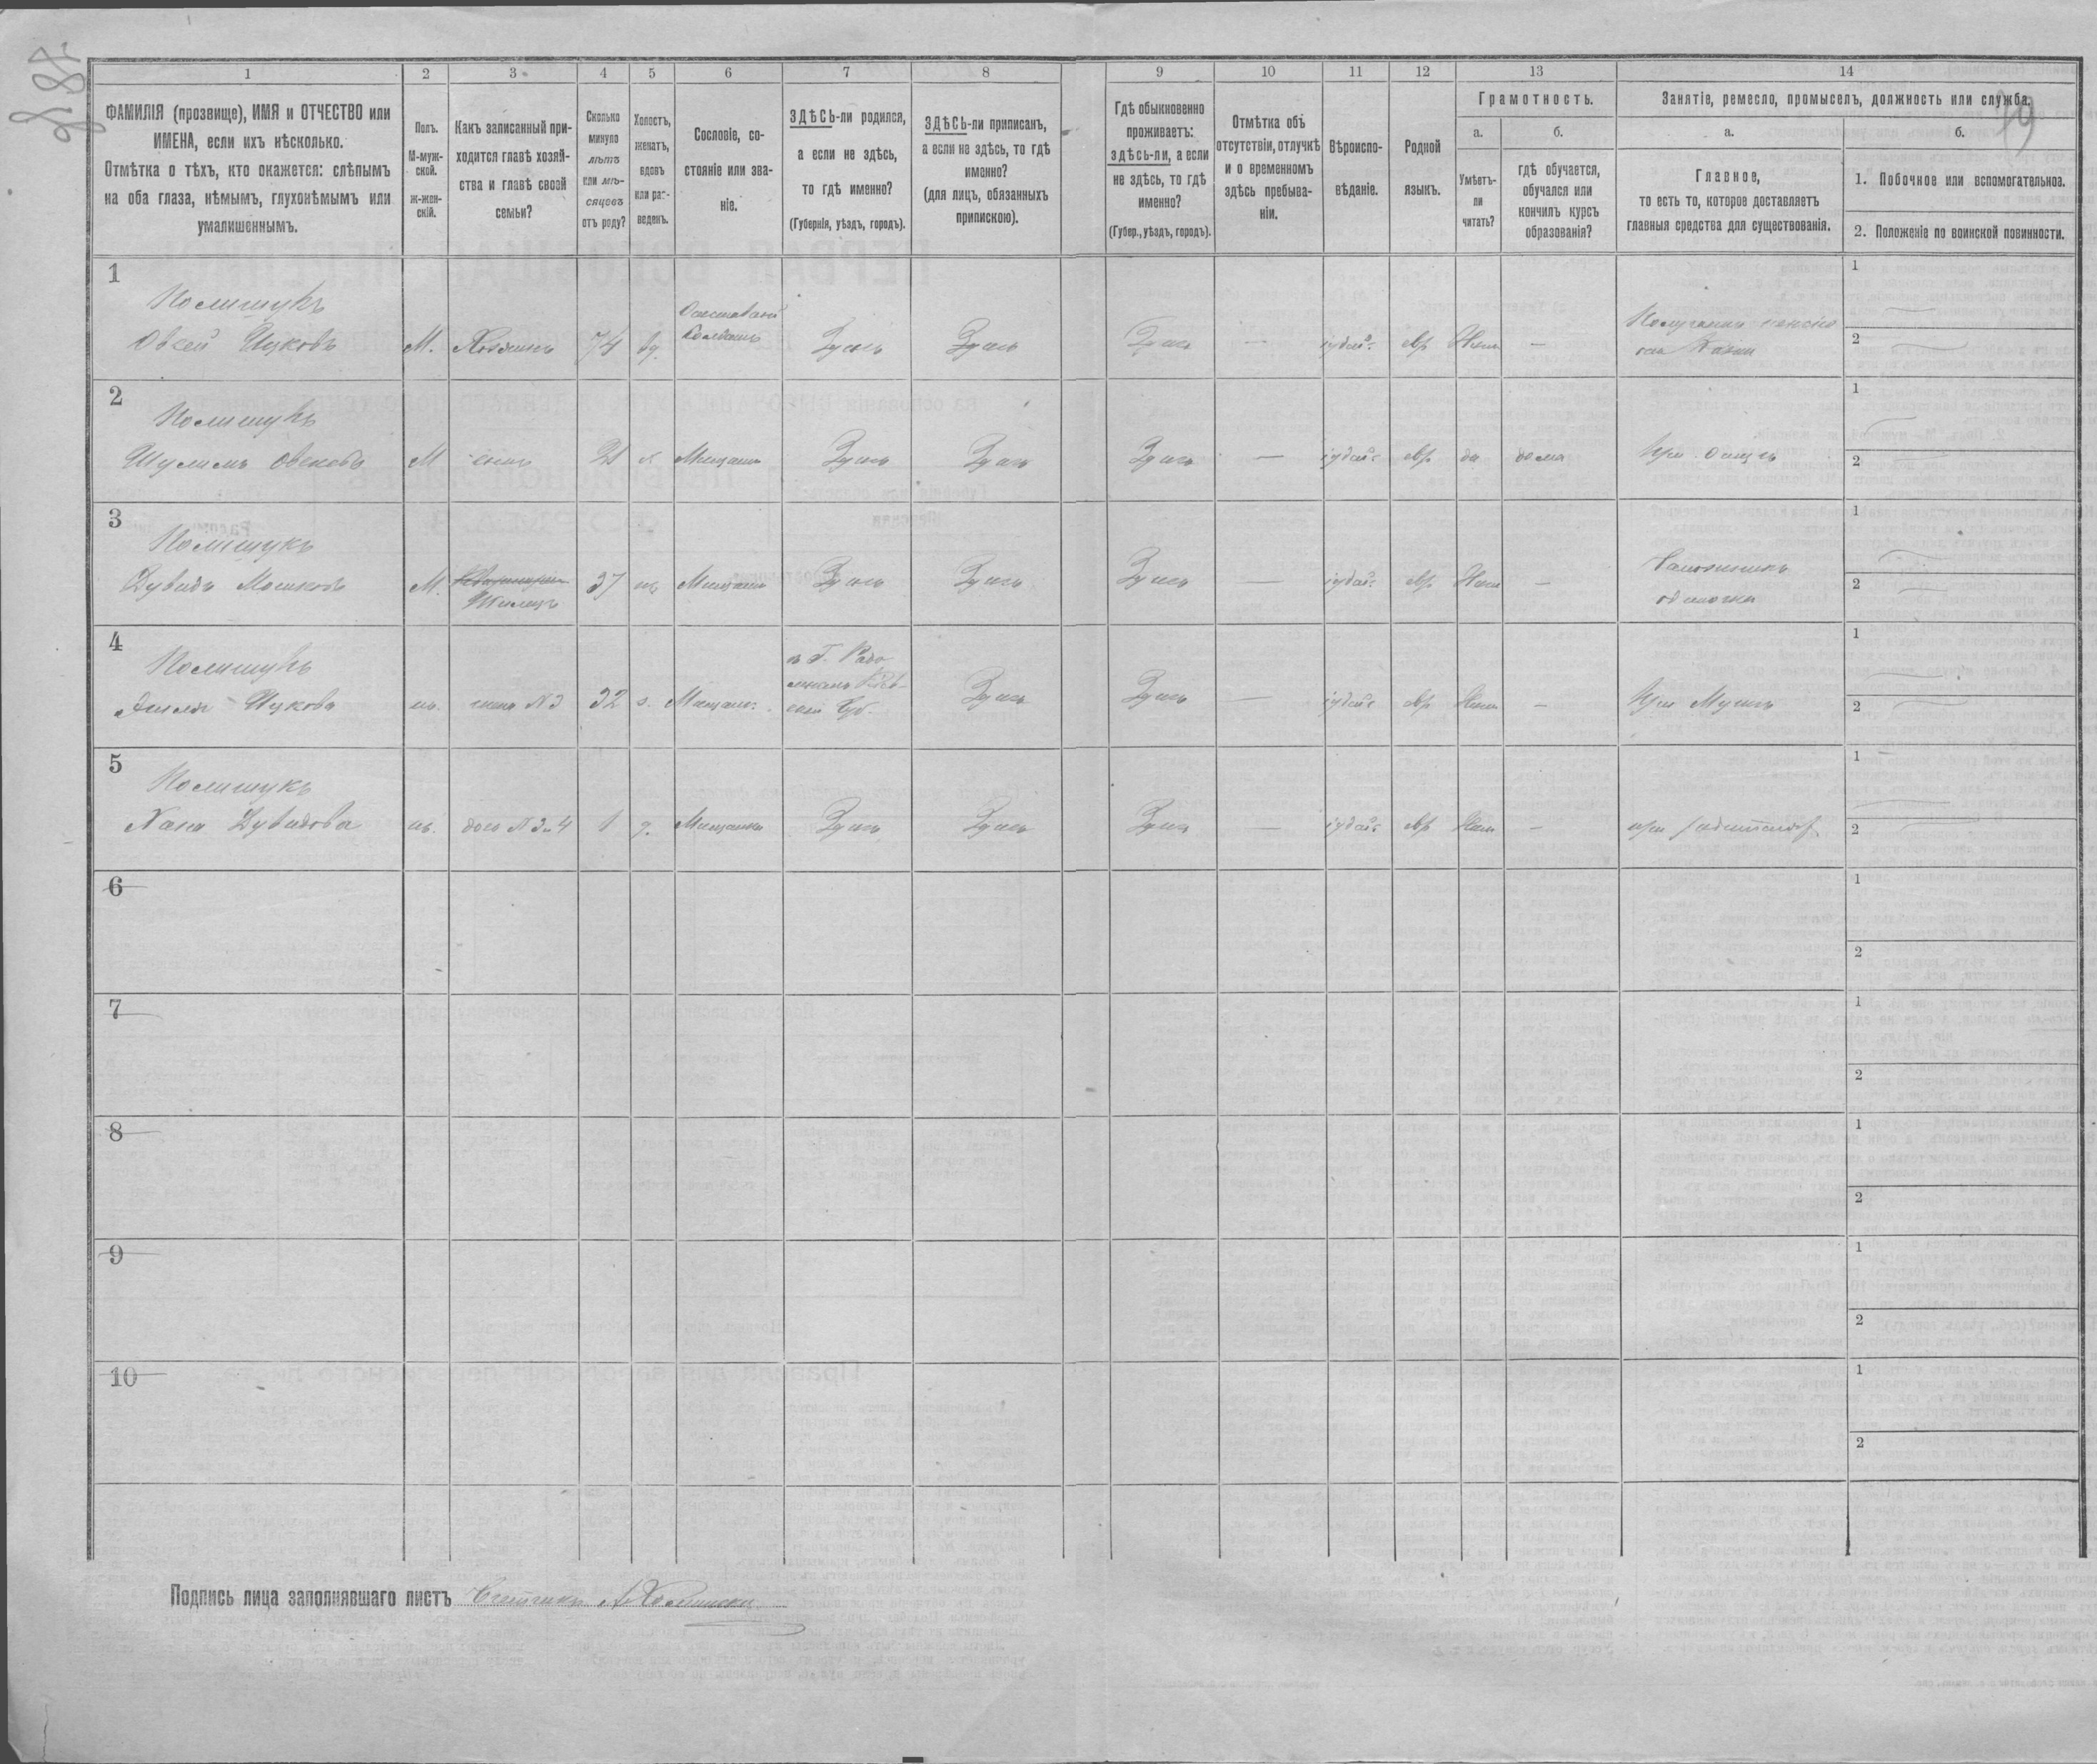 д. 87.
79
1 2 3 4 5 6 7 8 9 10 11 12 13 14
ФАМИЛІЯ (прозвище), ИМЯ и ОТЧЕСТВО или
ИМЕНА, если ихъ нѣсколько.
Отмѣтка о тѣхъ, кто окажется: слѣпымъ
на оба глаза, нѣмымъ, глухонѣмымъ или
умалишеннымъ.
Полъ.
М-муж-
ской.
ж-жен-
скій.
Какъ записанный при-
ходится главѣ хозяй-
ства и главѣ своей
семьи?
Сколько
минуло
лѣтъ
или мѣ-
сяцевъ
отъ роду?
Холостъ,
женатъ,
вдовъ
или раз-
веденъ.
Сословіе, со-
стояніе или зва-
ніе.
ЗДѢСЬ-ли родился,
а если не здѣсь,
то гдѣ именно?
(Губернія, уѣздъ, городъ).
ЗДѢСЬ-ли приписанъ,
а если не здѣсь, то гдѣ
именно?
(для лицъ, обязанныхъ
припискою).
Гдѣ обыкновенно
проживаетъ:
здѣсь-ли, а если
не здѣсь, то гдѣ
именно?
(Губер., уѣздъ, городъ).
Отмѣтка объ
отсутствіи, отлучкѣ
и о временномъ
здѣсь пребыва-
ніи.
Вѣроиспо-
вѣданіе.
Родной
языкъ.
Грамотность.
а. б.
Умѣетъ-
ли
читать?
гдѣ обучается,
обучался или
кончилъ курсъ
образованія?
Занятіе, ремесло, промыселъ, должность или служба.
а. б.
Главное,
то есть то, которое доставляетъ
главныя средства для существованія.
1. Побочное или вспомогательное.
2. Положеніе по воинской повинности.
1
Полищукъ
Овсей Ицковъ М. Хозяинъ 74 вд. Отставной
Солдатъ Здѣсь Здѣсь Здѣсь — іудей. евр Нѣтъ — 1
2
2
Полищукъ
Шулимъ Овсеевъ М сынъ 21 х. Мѣщан. Здѣсь Здѣсь Здѣсь — іудей. евр да дома При отцѣ 1
2
3
Полищукъ
Дувидъ Мошковъ М. Жилецъ 37 ж. Мѣщан. Здѣсь Здѣсь Здѣсь — іудей. евр Нѣтъ — Сапожникъ
одиночка 1
2
4
Полищукъ
Ицкова ж. жена №3 32 з. Мѣщан. в г. Радо
мыслѣ Кіев-
ской Губ. Здѣсь Здѣсь — іудей. евр Нѣтъ — При Мужѣ 1
2
5
Полищукъ
Хана Дувидова ж. дочь №3и4 1 д. Мѣщанка Здѣсь Здѣсь Здѣсь — іудей. евр Нѣтъ — при родителяхъ 1
2
6 1
2
7 1
2
8 1
2
9 1
2
10 1
2
Подпись лица заполнявшаго листъ Счетчикъ